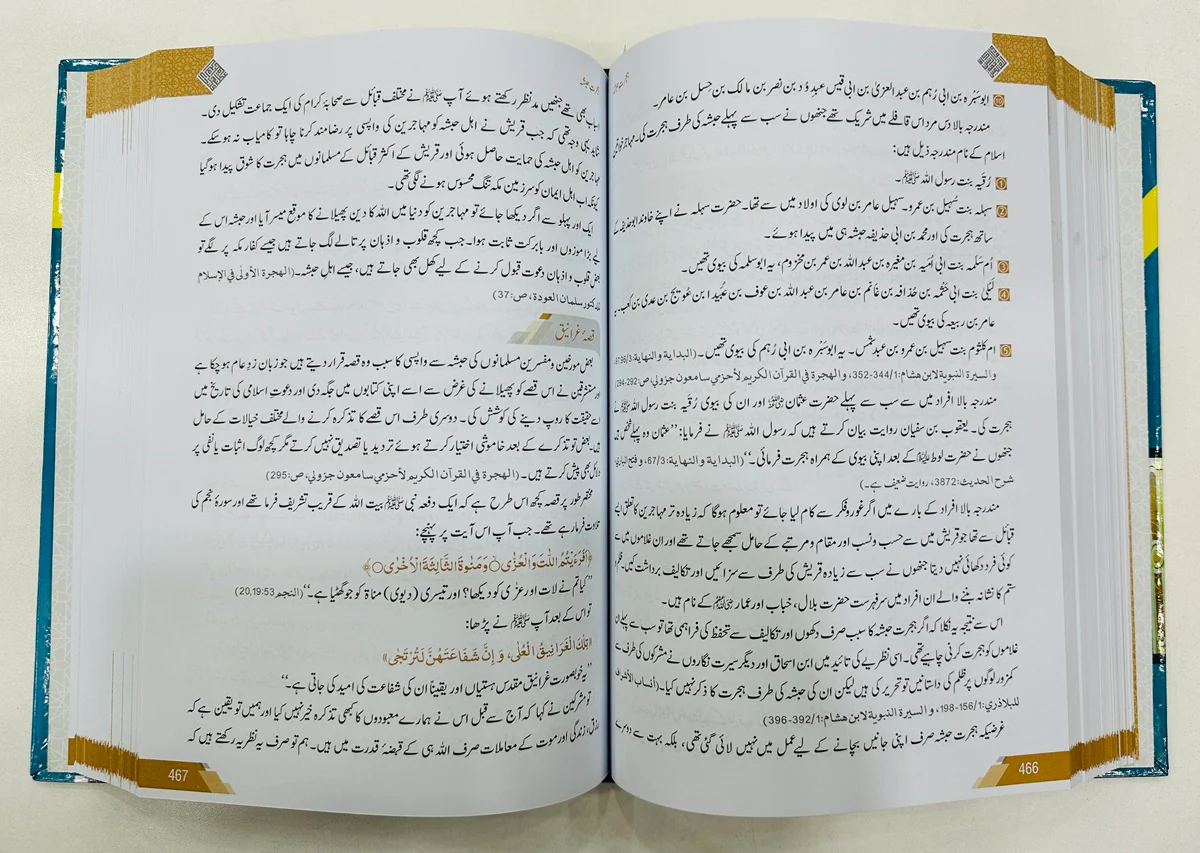 ابوسَبْرہ بن ابی رُہم بن عبدالعزیٰ بن ابی قیس عبدِ وُد بن نصر بن مالک بن حسل بن عامر۔
مندرجہ بالا دس مرد اس قافلے میں شریک تھے جنھوں نے سب سے پہلے حبشہ کی طرف ہجرت کی۔
اسلام کے نام مندرجہ ذیل ہیں:
① رُقَیہ بنت رسول اللہ ﷺ۔
② سہلہ بنت سُہیل بن عمرو۔ سہیل عامر بن لوی کی اولاد میں سے تھا۔ حضرت سہلہ نے اپنے خاوند ابوحذیفہ کے
ساتھ ہجرت کی اور محمد بن ابی حذیفہ حبشہ ہی میں پیدا ہوئے۔
③ اُم سَلَمہ بنت ابی اُمَیہ بن مغیرہ بن عبد اللہ بن عمر بن مخزوم، یہ ابوسلمہ کی بیوی تھیں۔
④ لَیْلیٰ بنت ابی حَثْمہ بن حُذافہ بن غانم بن عامر بن عبد اللہ بن عوف بن عُبید ابن عَویج بن عدی بن کعب۔ یہ
عامر بن ربیعہ کی بیوی تھیں۔
⑤ ام کلثوم بنت سہیل بن عمرو بن عبد شمس۔ یہ ابوسَبْرہ بن ابی رُہم کی بیوی تھیں۔ (البداية والنهاية: 96/3
والسيرة النبوية لابن هشام: 344/1-352، والهجرة في القرآن الكريم لأحزمي سامعون جزولي، ص: 292-294)
مندرجہ بالا افراد میں سے سب سے پہلے حضرت عثمان رضی اللہ عنہ اور ان کی بیوی رُقَیہ بنت رسول اللہ ﷺ نے
ہجرت کی۔ یعقوب بن سفیان روایت بیان کرتے ہیں کہ رسول اللہ ﷺ نے فرمایا: ’’عثمان وہ پہلے شخص ہیں
جنھوں نے حضرت لوط علیہ السلام کے بعد اپنی بیوی کے ہمراہ ہجرت فرمائی۔‘‘ (البداية والنهاية: 67/3، وفتح الباري
شرح الحديث: 3872، روایت ضعیف ہے۔)
مندرجہ بالا افراد کے بارے میں اگر غور و فکر سے کام لیا جائے تو معلوم ہوگا کہ زیادہ تر مہاجرین کا تعلق ایسے
قبائل سے تھا جو قریش میں سے حسب و نسب اور مقام و مرتبے کے حامل سمجھے جاتے تھے اور ان غلاموں میں سے
کوئی فرد دکھائی نہیں دیتا جنھوں نے سب سے زیادہ قریش کی طرف سے سزائیں اور تکالیف برداشت کیں۔ ظلم و
ستم کا نشانہ بننے والے ان افراد میں سرفہرست حضرت بلال، خباب اور عمار رضی اللہ عنہم کے نام ہیں۔
اس سے نتیجہ یہ نکلا کہ اگر ہجرت حبشہ کا سبب صرف دکھوں اور تکالیف سے تحفظ کی فراہمی تھا تو سب سے پہلے ان
غلاموں کو ہجرت کرنی چاہیے تھی۔ اسی نظریے کی تائید میں ابن اسحاق اور دیگر سیرت نگاروں نے مشرکوں کی طرف سے
کمزور لوگوں پر ظلم کی داستانیں تو تحریر کی ہیں لیکن ان کی حبشہ کی طرف ہجرت کا ذکر نہیں کیا۔ (أنساب الأشراف
للبلاذري: 156/1-198، والسيرة النبوية لابن هشام: 392/1-396)
غرضیکہ ہجرت حبشہ صرف اپنی جانیں بچانے کے لیے عمل میں نہیں لائی گئی تھی، بلکہ بہت سے دوسرے
466
اسباب بھی تھے جنھیں مدنظر رکھتے ہوئے آپ ﷺ نے مختلف قبائل سے صحابۂ کرام کی ایک جماعت تشکیل دی۔
شاید یہی وجہ تھی کہ جب قریش نے اہل حبشہ کو مہاجرین کی واپسی پر رضامند کرنا چاہا تو کامیاب نہ ہوسکے۔
مہاجرین کو اہل حبشہ کی حمایت حاصل ہوئی اور قریش کے اکثر قبائل کے مسلمانوں میں ہجرت کا شوق پیدا ہوگیا
کیونکہ اب اہل ایمان کو سرزمین مکہ تنگ محسوس ہونے لگی تھی۔
ایک اور پہلو سے اگر دیکھا جائے تو مہاجرین کو دنیا میں اللہ کا دین پھیلانے کا موقع میسر آیا اور حبشہ اس کے
لیے بڑا موزوں اور بابرکت ثابت ہوا۔ جب کچھ قلوب و اذہان پر تالے لگ جاتے ہیں جیسے کفار مکہ پر لگے تو
بعض قلوب و اذہان دعوت قبول کرنے کے لیے کھل بھی جاتے ہیں، جیسے اہل حبشہ۔ (الهجرة الأولى في الإسلام
للدكتور سلمان العودة، ص: 37)
قصۂ غرانیق
بعض مورخین و مفسرین مسلمانوں کی حبشہ سے واپسی کا سبب وہ قصہ قرار دیتے ہیں جو زبان زدِ عام ہوچکا ہے
اور مستشرقین نے اس قصے کو پھیلانے کی غرض سے اسے اپنی کتابوں میں جگہ دی اور دعوت اسلامی کی تاریخ میں
اسے حقیقت کا روپ دینے کی کوشش کی۔ دوسری طرف اس قصے کا تذکرہ کرنے والے مختلف خیالات کے حامل
ہیں، بعض تو تذکرے کے بعد خاموشی اختیار کرتے ہوئے تردید یا تصدیق نہیں کرتے مگر کچھ لوگ اثبات یا نفی پر
دلائل بھی پیش کرتے ہیں۔ (الهجرة في القرآن الكريم لأحزمي سامعون جزولي، ص: 295)
مختصر طور پر قصہ کچھ اس طرح ہے کہ ایک دفعہ نبی ﷺ بیت اللہ کے قریب تشریف فرما تھے اور سورۂ نجم کی
تلاوت فرما رہے تھے۔ جب آپ اس آیت پر پہنچے:
﴿اَفَرَءَيْتُمُ اللّٰتَ وَالْعُزّٰى ○ وَمَنٰوةَ الثَّالِثَةَ الْاُخْرٰى ○﴾
’’کیا تم نے لات اور عزیٰ کو دیکھا؟ اور تیسری (دیوی) مناۃ کو جو گھٹیا ہے۔‘‘ (النجم 20,19:53)
تو اس کے بعد آپ ﷺ نے پڑھا:
«تِلْكَ الْغَرَانِيقُ الْعُلٰى، وَإِنَّ شَفَاعَتَهُنَّ لَتُرْتَجٰى»
’’یہ خوبصورت غرانیق مقدس ہستیاں اور یقیناً ان کی شفاعت کی امید کی جاتی ہے۔‘‘
تو مشرکین نے کہا کہ آج سے قبل اس نے ہمارے معبودوں کا کبھی تذکرہ خیر نہیں کیا اور ہمیں تو یقین ہے کہ
رزق، زندگی اور موت کے معاملات صرف اللہ ہی کے قبضۂ قدرت میں ہیں۔ ہم تو صرف یہ نظریہ رکھتے ہیں کہ
467